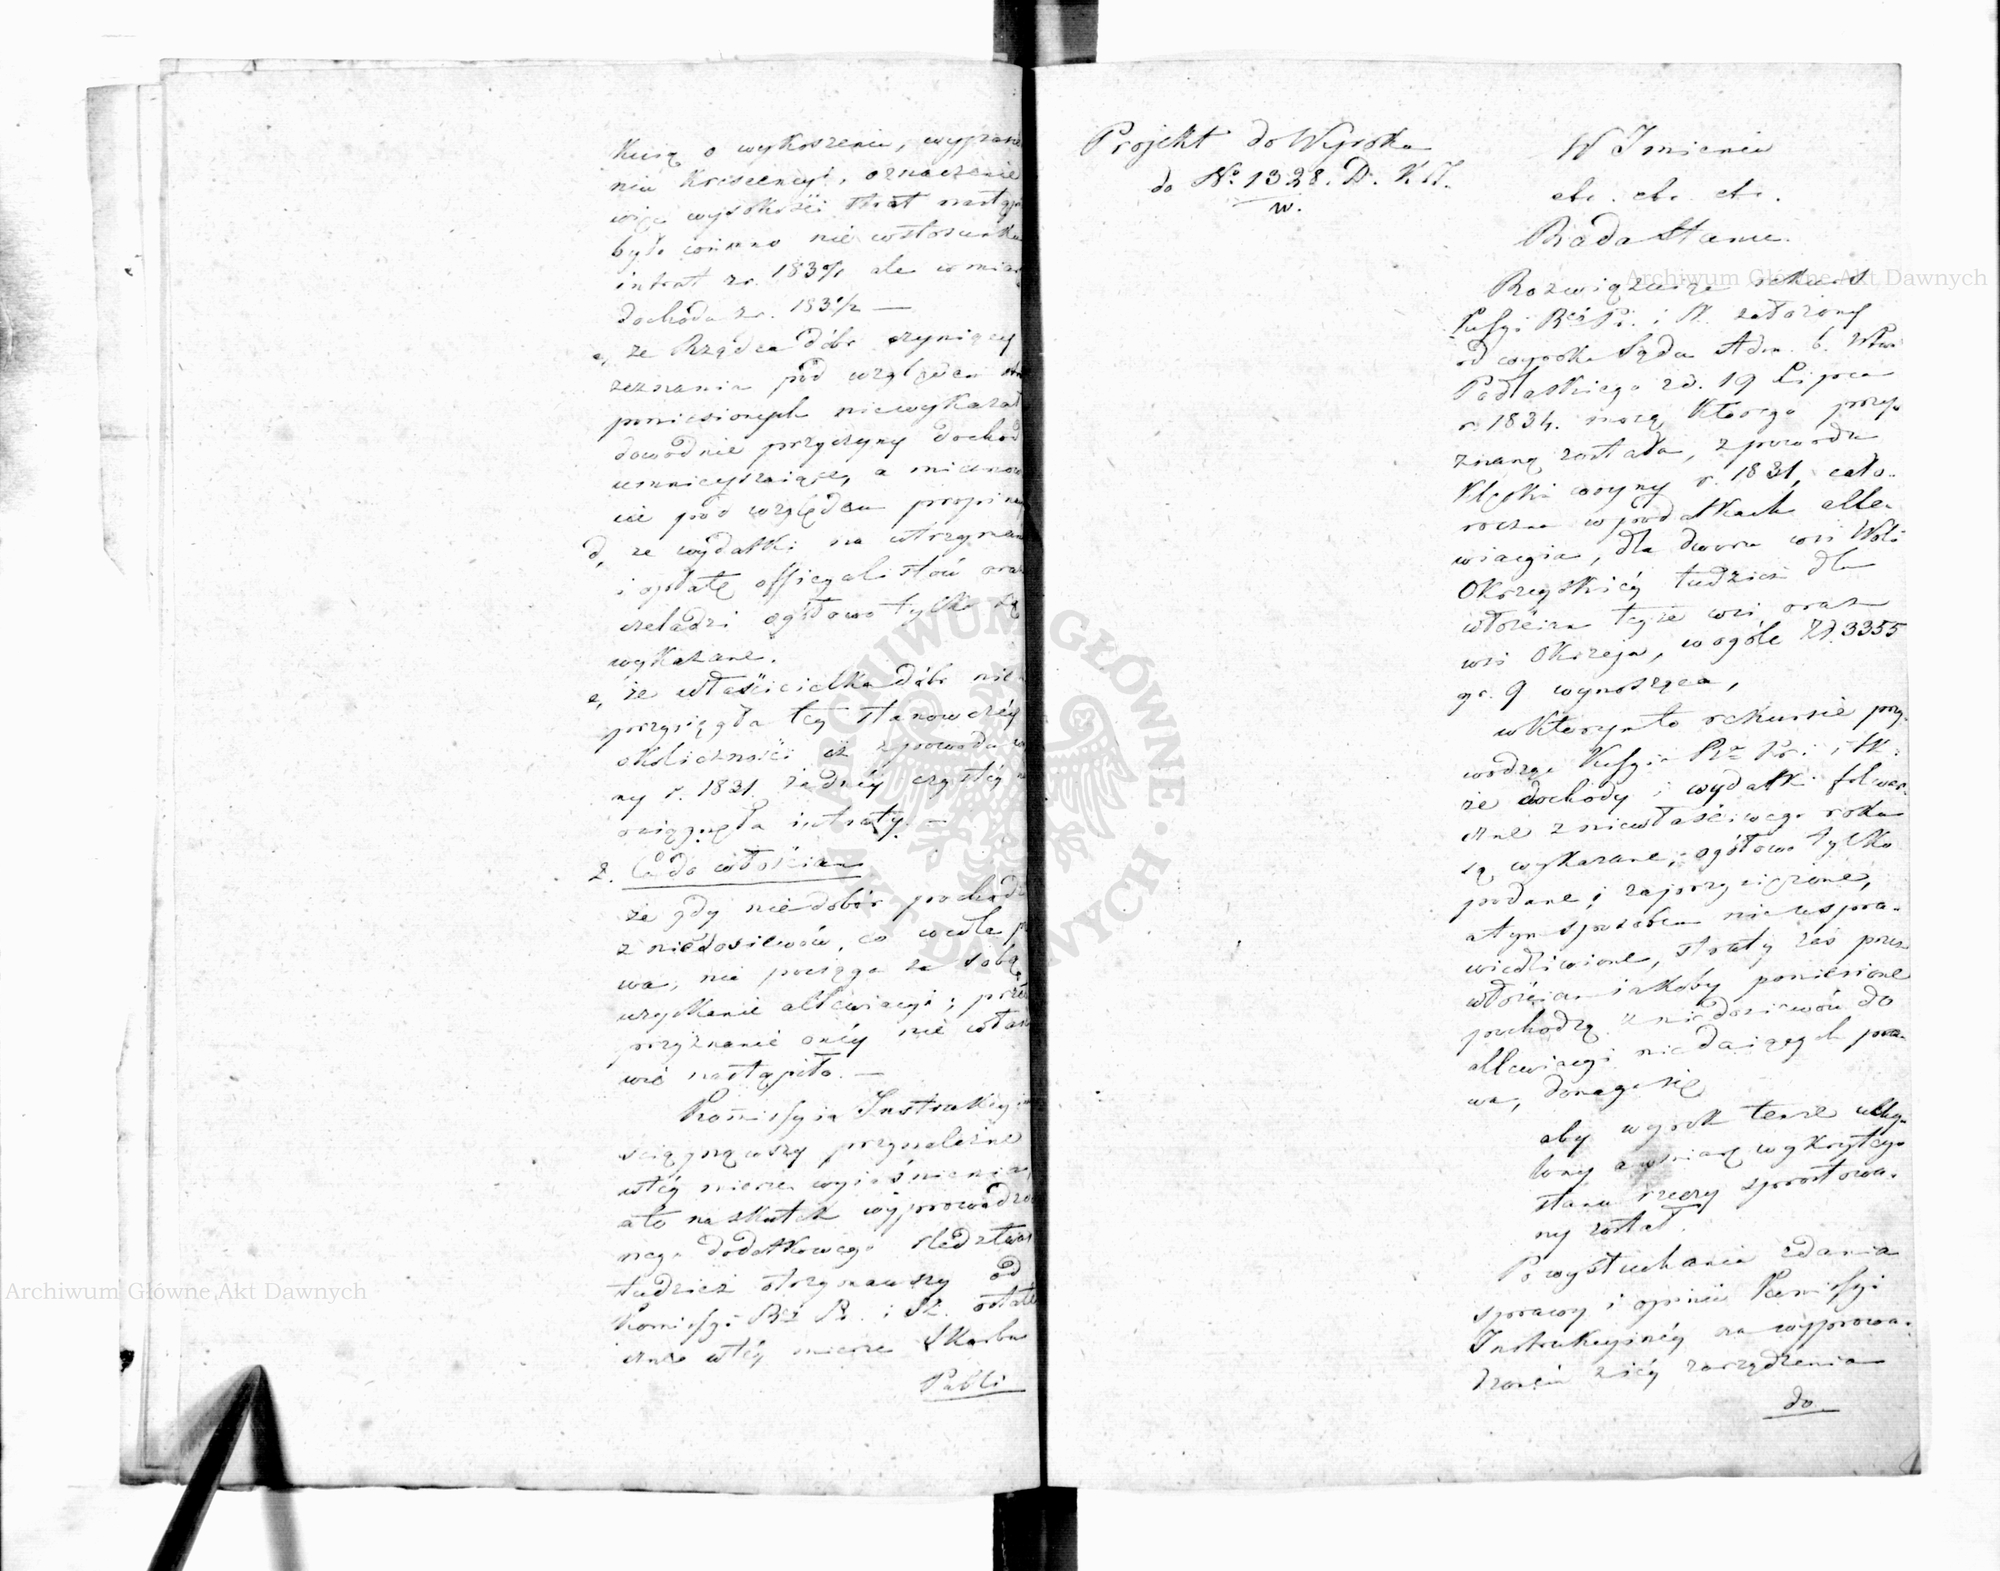 kucą o wykoszeniu, wyprzeda
niu krescencyi, oznaczenie
więc wysokości strat nastąpić
było winno nie w stosunku
intrat z r. 1830/1 ale w miarę
dochodu z r. 1831/2 —
że Rządca dóbr czyniący
zeznania pod względem strat
poniesionych niewykazał
dowodnie przyczyny dochód
umnieyszaiące, a mianowi
cie pod względem propinacyi
d, że wydatki na utrzymanie
i opłatę officyalistów oraz
czeladzi ogółowo tylko są
wykazane.
e, że właścicielka dóbr nie
przysięgła tey stanowczéy
okoliczności iż z powodu woy
ny r. 1831. żadnéy czystéy nie
osiągnęła intraty. —
2. Co do włościan
że gdy niedobór pochodzi
z niedosiewów, co wedle pra
wa, nie pociąga za sobą
uzyskanie allewiacyi; przeto
przyznanie onéy nie właści
wie nastąpiło. —
Kommissyia Instrukcyina
ściągnąwszy przynależne
w téy mierze wyiaśnienia,
a to na skutek wyprowadzo
nego dodatkowego śledztwa
tudzież otrzymawszy od
Kommissyi Rz. P. i Sk. ostate
czne w téy mierze Skarbu
Publi
Projekt do Wyroku
do No. 1328. D. K. J.
w.
W Imieniu
etc. etc. etc.
Rada Stanu.
Rozwiązuiąc rekurs
Kossyi Rz. P. i S. założony
od wyroku Sądu Adm. b. Wtwa
Podlaskiego z d. 19 Lipca
r. 1834. mocą którego przy
znaną została, z powodu
klęski woyny r. 1831, cało-
roczna w podatkach alle-
wiacyia, dla dworu wsi Woli
Okrzeyskiéy tudzież dla
włościan teyże wsi oraz
wsi Okrzeja, w ogóle Zł. 3355
gr. 9 wynosząca,
w którymto rekursie przy-
wodząc Kossyia Rz. P. i Sk.
że dochody i wydatki folwar-
czne z niewłaściwego roku
są wykazane, ogółowo tylko
podane i zaprzysiężone,
a tym sposobem nieuspra-
wiedliwione, straty zaś przez
włościan iakoby poniesione
pochodzą z niedosiewów do
allewiacyi nie daiących pra-
wa, domaga się
aby wyrok tenże uchy-
lony a w miarę wykrytego
stanu rzeczy sprostowa-
ny został.
Po wysłuchaniu zdania
sprawy i opinii Kommissyi
Instrukcyinéy na wyprowa-
dzoném z iéy zarządzenia
do
Archiwum Główne Akt Dawnych
Archiwum Główne Akt Dawnych
ARCHIWUM GŁÓWNE AKT DAWNYCH